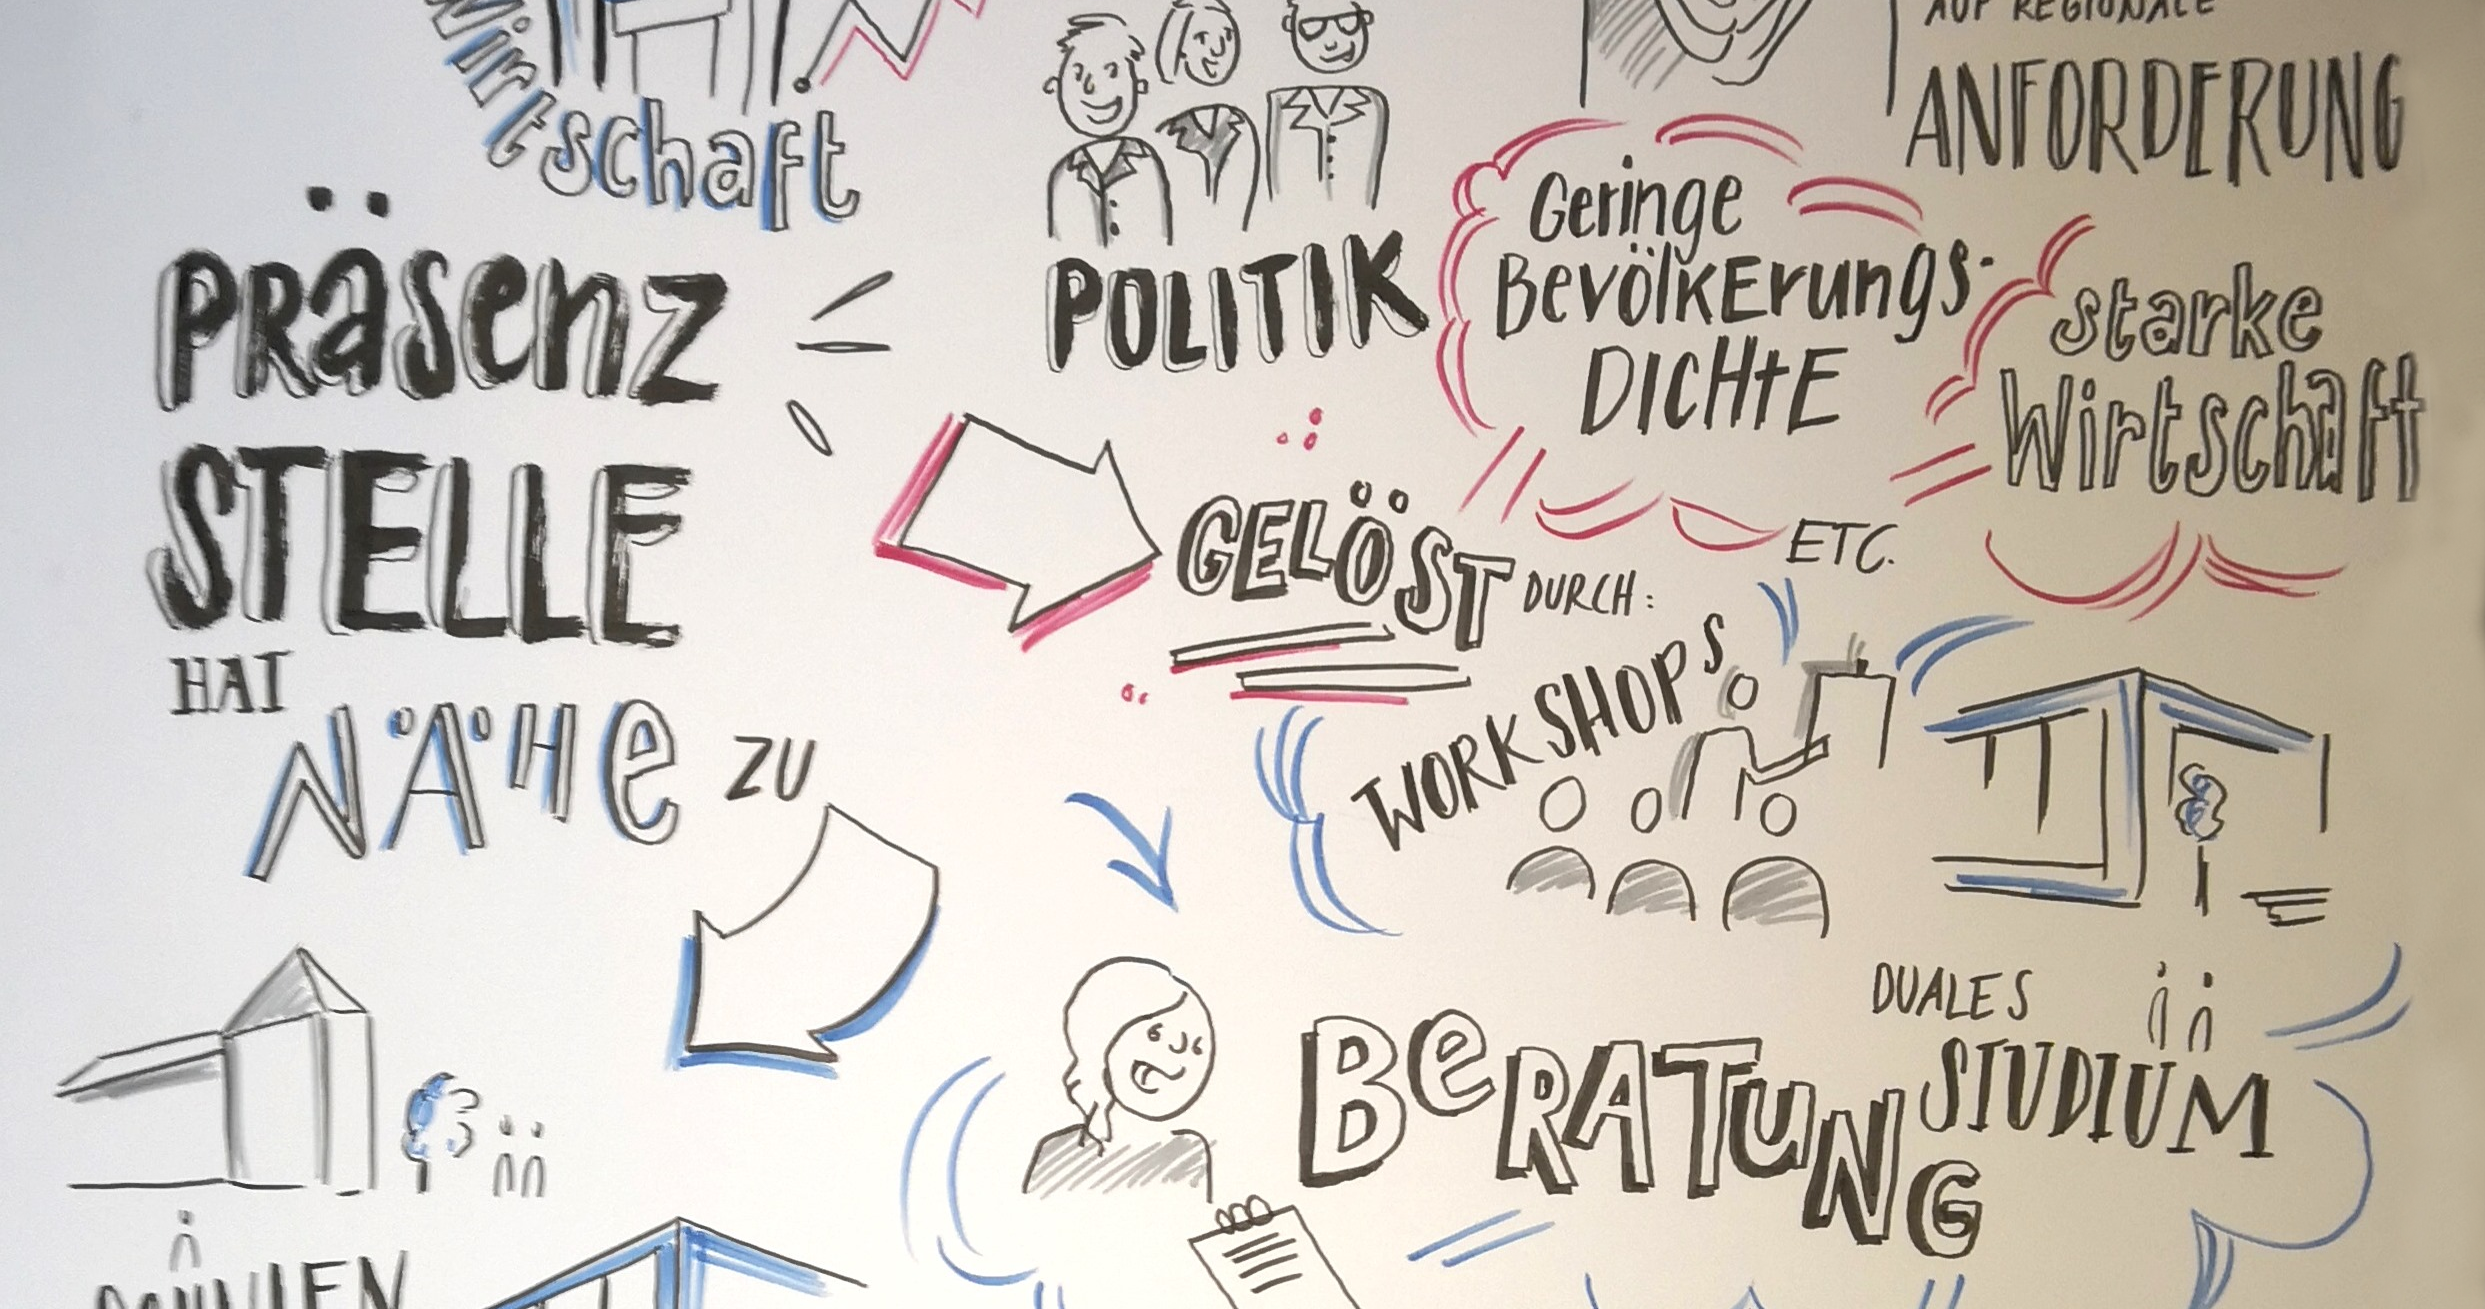 Wirtschaft
PRäsenz
STELLE
HAT
NÄHe ZU
POLITIK
AUF REGIONALE
ANFORDERUNG
Geringe
BevölKErungs-
DICHtE
starke
Wirtschaft
ETC.
GELÖST DURCH:
WORKSHOPS
BeRATUNG
DUALES
STUDIUM
SCHULEN